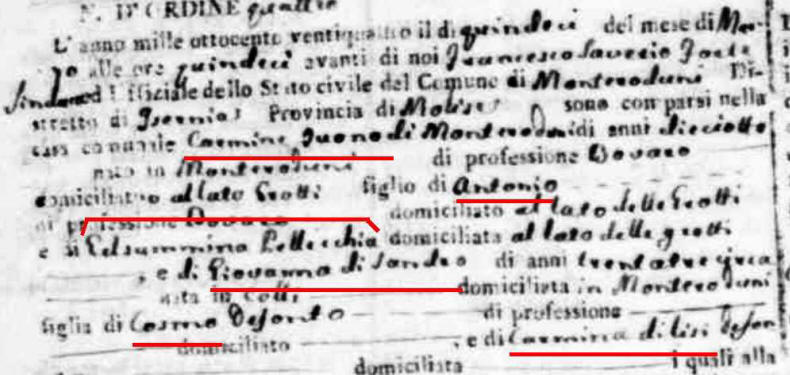 N. D'ORDINE quattro
L'anno mille ottocento ventiquattro il dì quindeci del mese di Mar-
zo alle ore quindeci avanti di noi Francesco Saverio
Sindaco ed Uffiziale dello Stato civile del Comune di Monteroduni Di-
stretto di Isernia Provincia di Molise sono comparsi nella
casa comunale Carmine di Monteroduni di anni dieciotto
nato in Monteroduni di professione Bovaro
domiciliato al lato Grotti figlio di Antonio
di professione Bovaro domiciliato al lato delle Grotti
e di Gelsummina Pellecchia domiciliata al lato delle grotti
, e di Giovanna di Sandro di anni trentatre circa
nata in Colli domiciliata in Monteroduni
figlia di Cosmo di professione
domiciliato , e di Carmina di
domiciliata i quali alla